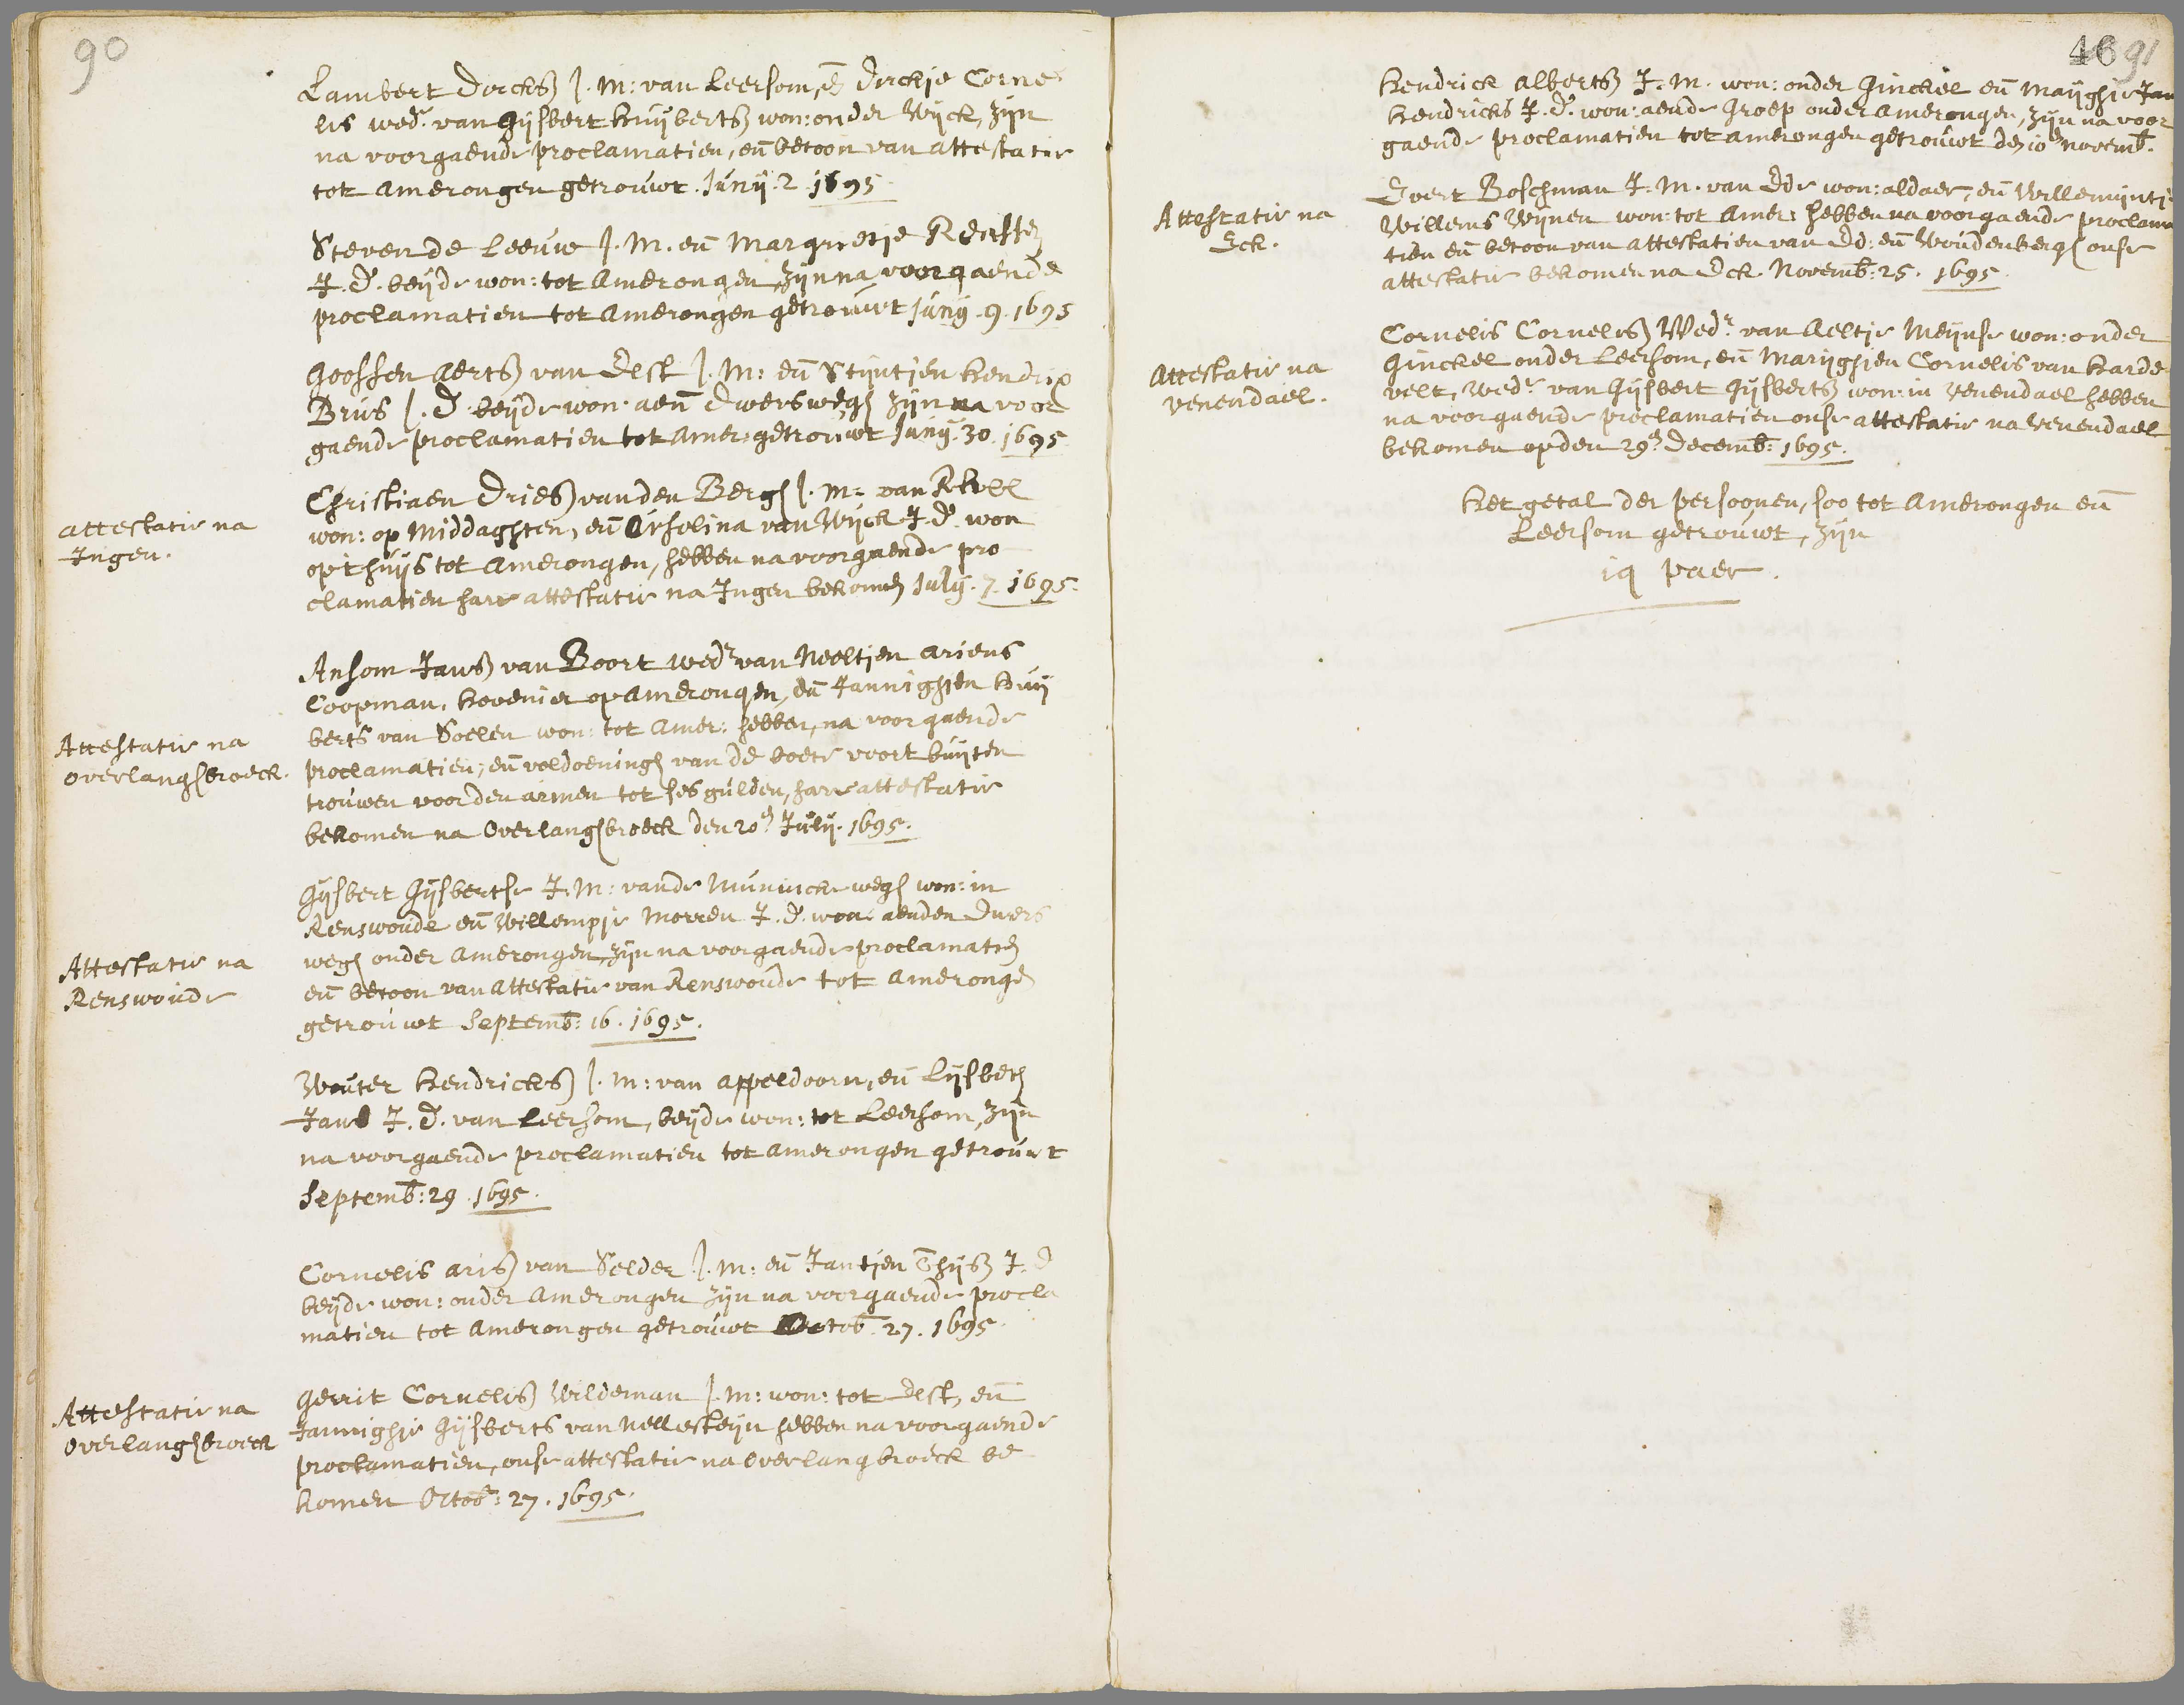 90
Lambert Dircksz J. M: van Leersom, en Dirckje Corne
lis wedr. van Gijsbert Huijbertsz won: onder Wijck, zijn
na voorgaende proclamatien, en betoon van attestatie
tot Amerongen getrouwt. Junij. 2. 1695
Steven de Leeuw J. M. en Margrietje
J. D. beijde won: tot Amerongen, zijn na voorgaende
proclamatien tot Amerongen getrouwt Junij. 9. 1695
Goossen Aertsz van Elst J. M: en Stijntjen Hendrix
Brus J. D. beijde won. aen Dwerswegh zijn na voor
gaende proclamatien tot Amer: getrouwt Junij. 30. 1695
attestatie na
Ingen.
Christiaen Driesz van den Bergh J. M: van
won: op Middaghten, en Ursolina van Wijck J. D. won
op't huijs tot Amerongen, hebben na voorgaende pro
clamatien hare attestatie na Ingen bekomen July. 7. 1695.
Attestatie na
Overlanghbroeck.
Ansom Jansz van Boort wedr. van Neeltjen Ariens
Coopman, Hovenier op Amerongen, en Jannighjen Huij
berts van Soelen won: tot Amer: hebben, na voorgaende
proclamatien; en voldoeningh van de boete voort buijten
trouwen voor den armen tot ses gulden, hare attestatie
bekomen na Overlanghbroeck den 20en July. 1695.
Attestatie na
Renswoude
Gijsbert Gijsbertse J: M: van de Munnickewegh won: in
Renswoude en Willempje Morren J. D. won: aenden Dwers
wegh onder Amerongen, zijn na voorgaende proclamatien
en betoon van attestatie van Renswoude tot Amerongen
getrouwt Septemb: 16. 1695.
Wouter Hendricksz J. M: van Appeldoorn, en Lijsbeth
Jans J. D. van Leersom, beijde won: tot Leersom, zijn
na voorgaende proclamatien tot Amerongen getrouwt
Septemb: 29. 1695.
Cornelis Arisz van Selder J. M: en Jantjen Thijsz J. D
beijde won: onder Amerongen zijn na voorgaende procla
matien tot Amerongen getrouwt Octob. 27. 1695.
Attestatie na
Overlanghbroeck
Gerrit Cornelisz Wildeman J. M: won: tot Elst, en
Jannighje Gijsberts van Nellesteijn hebben na voorgaende
proclamatien, onse attestatie na Overlangbroeck be
komen Octob: 27. 1695.
46 91
Hendrick Albertsz J. M. won: onder Ginckel en Maijghje Jan
Hendricks J. D. won: aende Groep onder Amerongen, zijn na voor
gaende proclamatien tot Amerongen getrouwt den 10en Novemb.
Attestatie na
Eck.
Evert Boschman J. M. van Ede won: aldaer, en Willemijntje
Willems Wijnen won: tot Amer: hebben na voorgaende proclama
tien en betoon van attestatien van Ed: en Woudenbergh onse
attestatie bekomen na Eck. Novemb: 25. 1695.
Attestatie na
Venendael.
Cornelis Cornelisz Wedr. van Aeltje Meijnse won: onder
Ginckel onder Leersom, en Marijghjen Cornelis van Harde
velt, Wedr. van Gijsbert Gijsbertsz won: in Venendael hebben
na voorgaende proclamatien onse attestatie na Venendael
bekomen op den 29en. Decemb: 1695.
Het getal der persoonen, soo tot Amerongen en
Leersom getrouwt, zijn
19 paer.